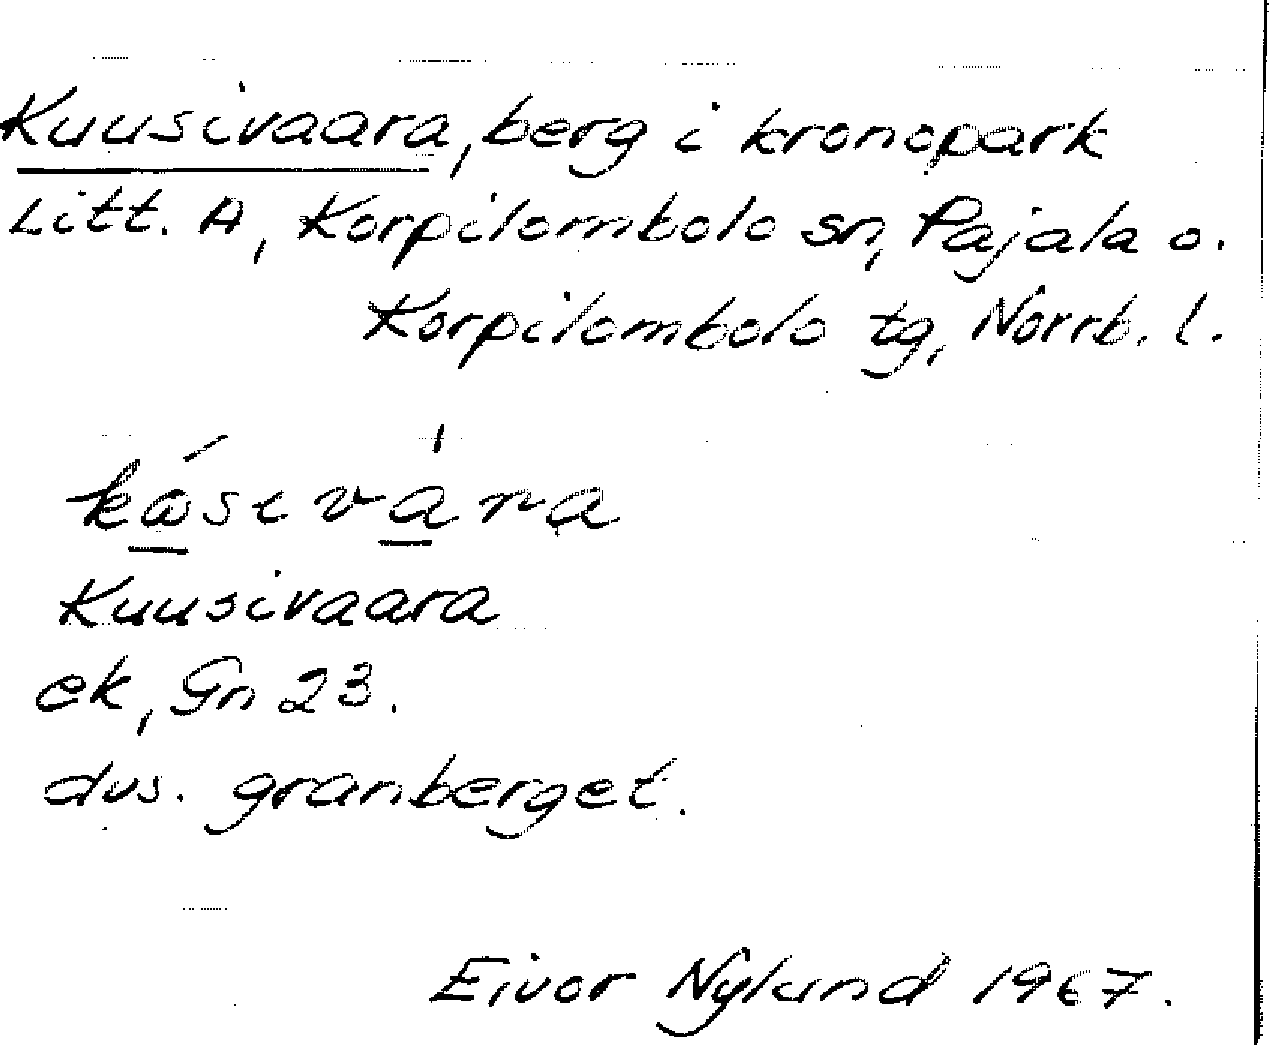 Kuusivaara, berg i kronopark
Litt. A, Korpilombolo sn, Pajala o.
Korpilombolo tg, Norrb. l.
Kuusivaara
ek, Gn 23.
dvs. granberget.
Eivor Nylund 1967.